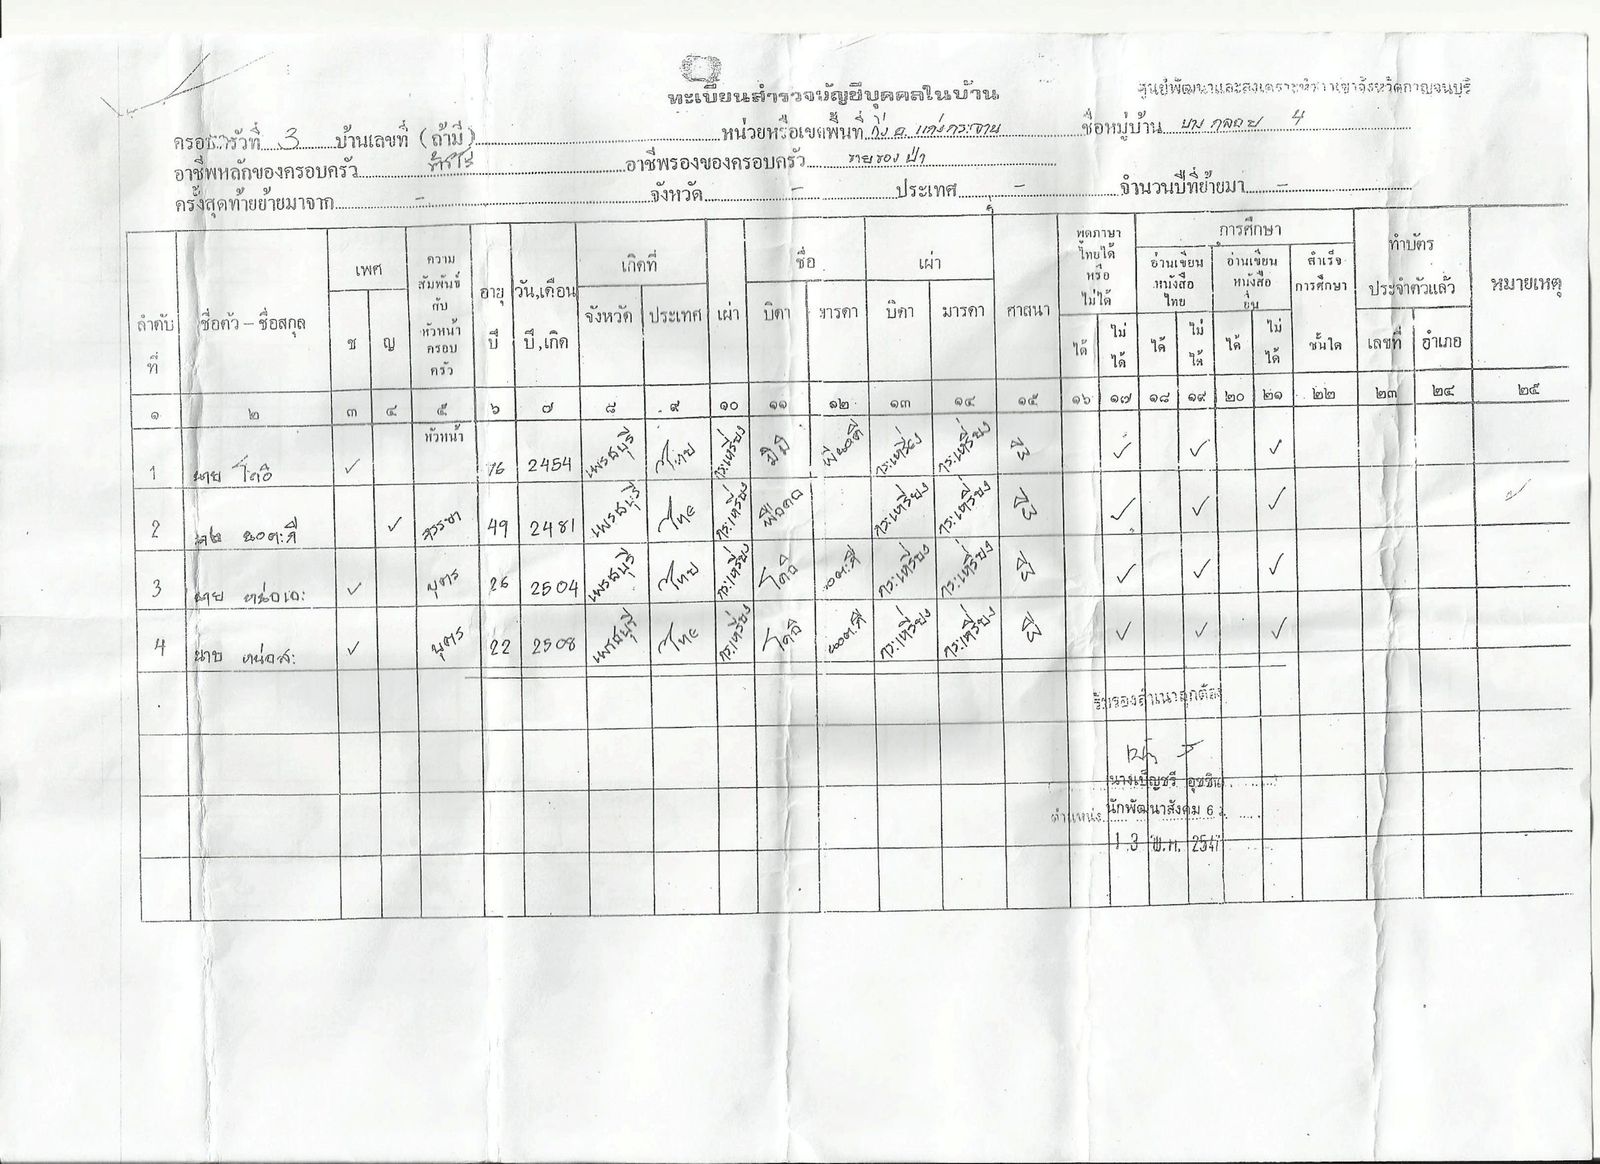 ทะเบียนสำรวจบัญชีบุคคลในบ้าน
ศูนย์พัฒนาและสงเคราะห์ชาวเขาจังหวัดกาญจนบุรี
ครอบครัวที่ 3 บ้านเลขที่ (ถ้ามี) หน่วยหรือเขตพื้นที่ กิ่ง อ. แก่งกระจาน ชื่อหมู่บ้าน บางกลอย 4
อาชีพหลักของครอบครัว ทำไร่ อาชีพรองของครอบครัว หาของป่า
ครั้งสุดท้ายย้ายมาจาก - จังหวัด - ประเทศ - จำนวนปีที่ย้ายมา -
ลำดับที่ ชื่อตัว – ชื่อสกุล เพศ ช ญ ความสัมพันธ์กับหัวหน้าครอบครัว อายุ ปี วัน,เดือน ปี,เกิด เกิดที่ จังหวัด ประเทศ เผ่า ชื่อ บิดา มารดา เผ่า บิดา มารดา ศาสนา พูดภาษาไทยได้หรือไม่ได้ ได้ ไม่ได้ การศึกษา อ่านเขียนหนังสือไทย ได้ ไม่ได้ อ่านเขียนหนังสืออื่น ได้ ไม่ได้ สำเร็จการศึกษา ชั้นใด ทำบัตรประจำตัวแล้ว เลขที่ อำเภอ หมายเหตุ
๑ ๒ ๓ ๔ ๕ ๖ ๗ ๘ ๙ ๑๐ ๑๑ ๑๒ ๑๓ ๑๔ ๑๕ ๑๖ ๑๗ ๑๘ ๑๙ ๒๐ ๒๑ ๒๒ ๒๓ ๒๔ ๒๕
1 นาย โคอิ ✓ หัวหน้า 76 2454 เพรชบุรี ไทย กระเหรี่ยง มิมิ พินอดี กระเหรี่ยง กระเหรี่ยง ผี ✓ ✓ ✓
2 นอตะกี ✓ ภรรยา 49 2481 เพรชบุรี ไทย กระเหรี่ยง กระเหรี่ยง กระเหรี่ยง ผี ✓ ✓ ✓
3 นาย หน่อเอะ ✓ บุตร 26 2504 เพรชบุรี ไทย กระเหรี่ยง โคอิ นอตะกี กระเหรี่ยง กระเหรี่ยง ผี ✓ ✓ ✓
4 นาย หน่อสะ ✓ บุตร 22 2508 เพรชบุรี ไทย กระเหรี่ยง โคอิ นอตะกี กระเหรี่ยง กระเหรี่ยง ผี ✓ ✓ ✓
รับรองสำเนาถูกต้อง
นางเบ็ญชรี อุชชิน
ตำแหน่ง นักพัฒนาสังคม 6 ว
13 พ.ค. 2547